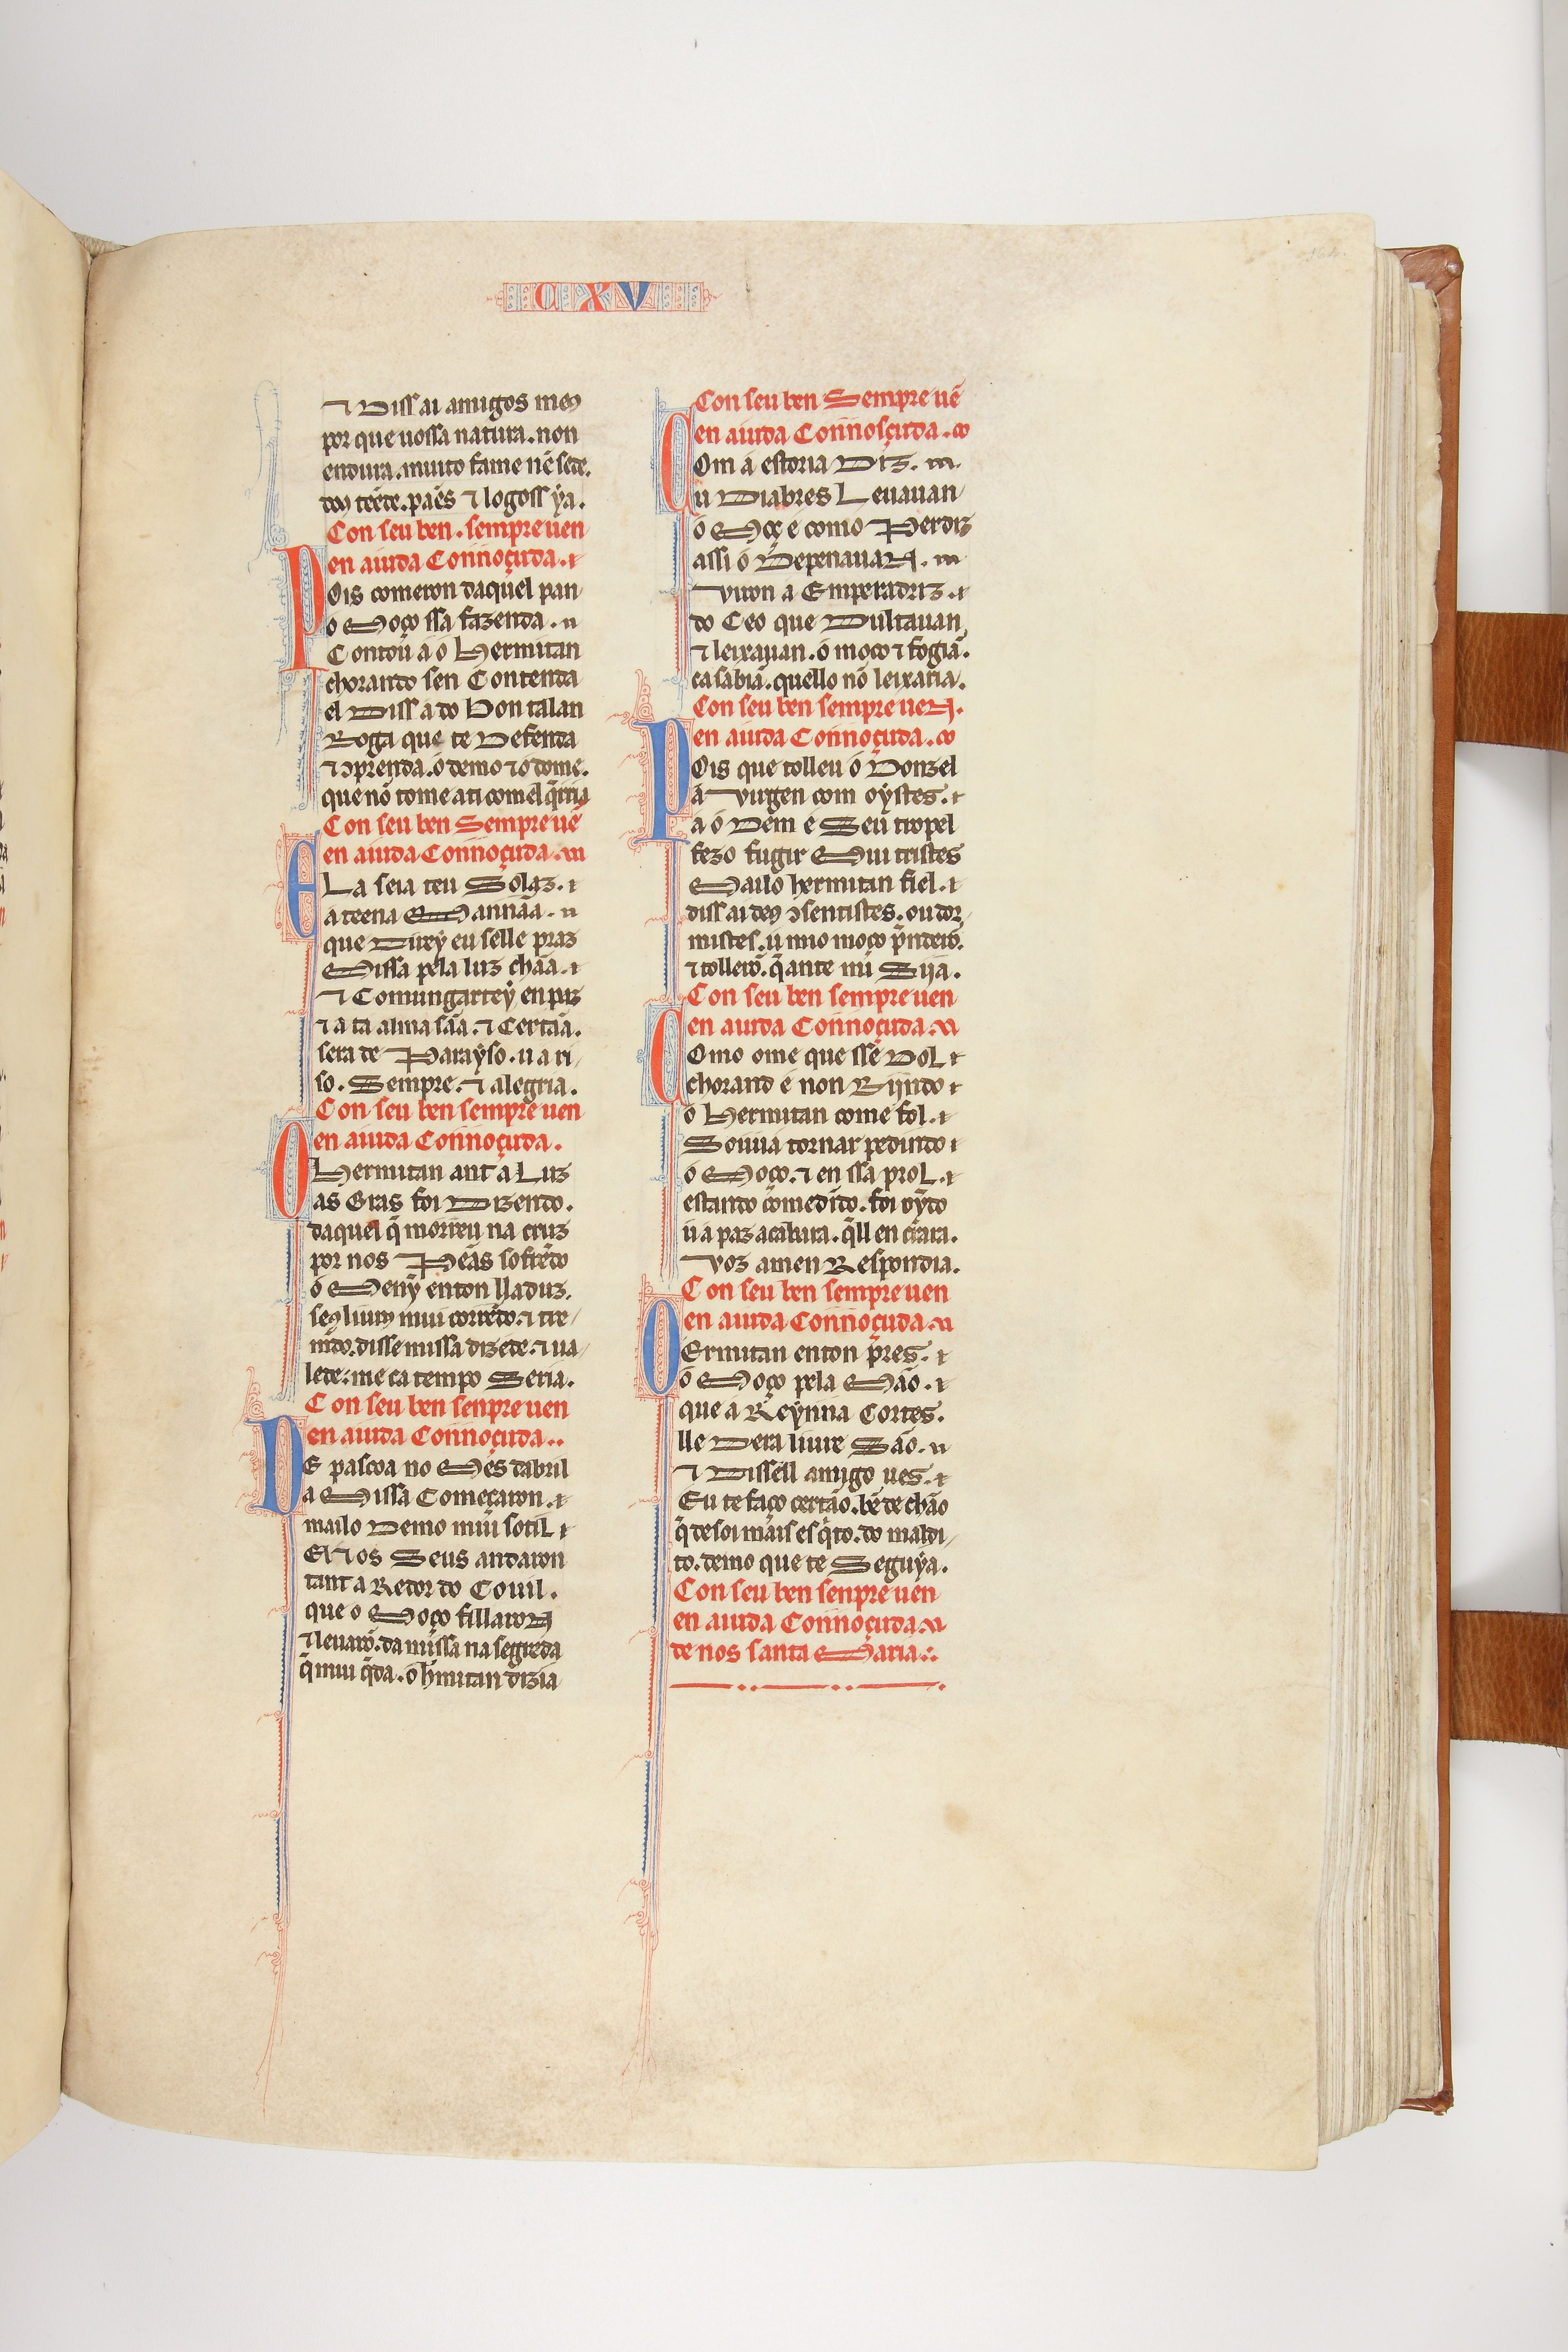 CXV
⁊ Diss ai amigos me9
por que uossa natura. non
endura. muito fame nẽ sede.
do9 tẽede. pães ⁊ logoss ya.
Con seu ben. sempre uen
en aiuda Connoçuda.
Pois comeron daquel pan
o Moço ssa fazenda.
Contou a o Hermitan
chorando sen Contenda
el Diss a do Bon talan
Roga que te Defenda
⁊ ↄprenda. o demo ⁊ o dome.
que nõ tome a ti com el q̃rria
Con seu ben Sempre uẽ
en aiuda Connoçuda.
Ela seia teu Solaz.
a teena Mannãa.
que Direy eu se lle praz
Missa pela luz chãa.
⁊ Comungartey en paz
⁊ a ta alma sãa. ⁊ Certãa.
sera de Parayso. u a ri/
so. Sempre. ⁊ alegria.
Con seu ben sempre uen
en aiuda Connoçuda.
O Hermitan ant a Luz
as Oras foi Dizendo.
daquel q̃ morreu na cruz
por nos Pẽas sofrẽdo
o Meny enton ll aduz.
se9 liuro9 mui corrẽdo. ⁊ tre/
mẽdo. disse missa dizede. ⁊ ua/
lede: me ca tempo Seria.
Con seu ben senpre uen
en aiuda Connoçuda..
De pascoa no Mes dabril
a Missa Começaron.
mailo Demo mui sotil
El ⁊ os Seus andaron
tant a Redor do Couil.
que o Moço fillaron
⁊ leuarõ. da missa na segreda
q̃ mui q̃da. o h̃mitan dizia
Con seu ben Sempre uẽ
en aiuda Connosçuda.
Com a estoria Diz.
u Diabres Leuauan
o Moç e como Perdiz
assi o Depenauan.
viron a Emperadriz.
do Ceo que Dultauan
⁊ leixauan. o moço ⁊ fogiã.
ca sabiã. que llo nõ leixaria.
Con seu ben sempre uen.
en aiuda Connoçuda.
Pois que tolleu o Donzel
a virgen com oystes.
a o Dem e Seu tropel
fezo fugir Mui tristes
Mailo hermitan fiel.
diss ai de9 ↄsentistes. ou dor/
mistes. u mio moço p̃nderõ.
⁊ tollerõ. q̃ ante mi Sija.
Con seu ben sempre uen
en aiuda Connoçuda.
Como ome que sse Dol
chorand e non Rijndo
o Hermitan come fol.
Souua tornar pedindo
o Moço. ⁊ en ssa prol.
estando comedĩdo. foi oydo
u a paz acabara. q̃ll en crara.
voz amen Respondia.
Con seu ben sempre uen
en aiuda Connoçuda.
O Ermitan enton p̃res.
o Moço pela Mão.
que a Reynna Cortes.
lle Dera liure São.
⁊ Dissell amigo ues.
Eu te faço certão. bẽ de chão
q̃ desoi mais es q̃to. do maldi/
to. demo que te Seguya.
Con seu ben senpre uen
en aiuda Connoçuda.
de nos santa Maria.